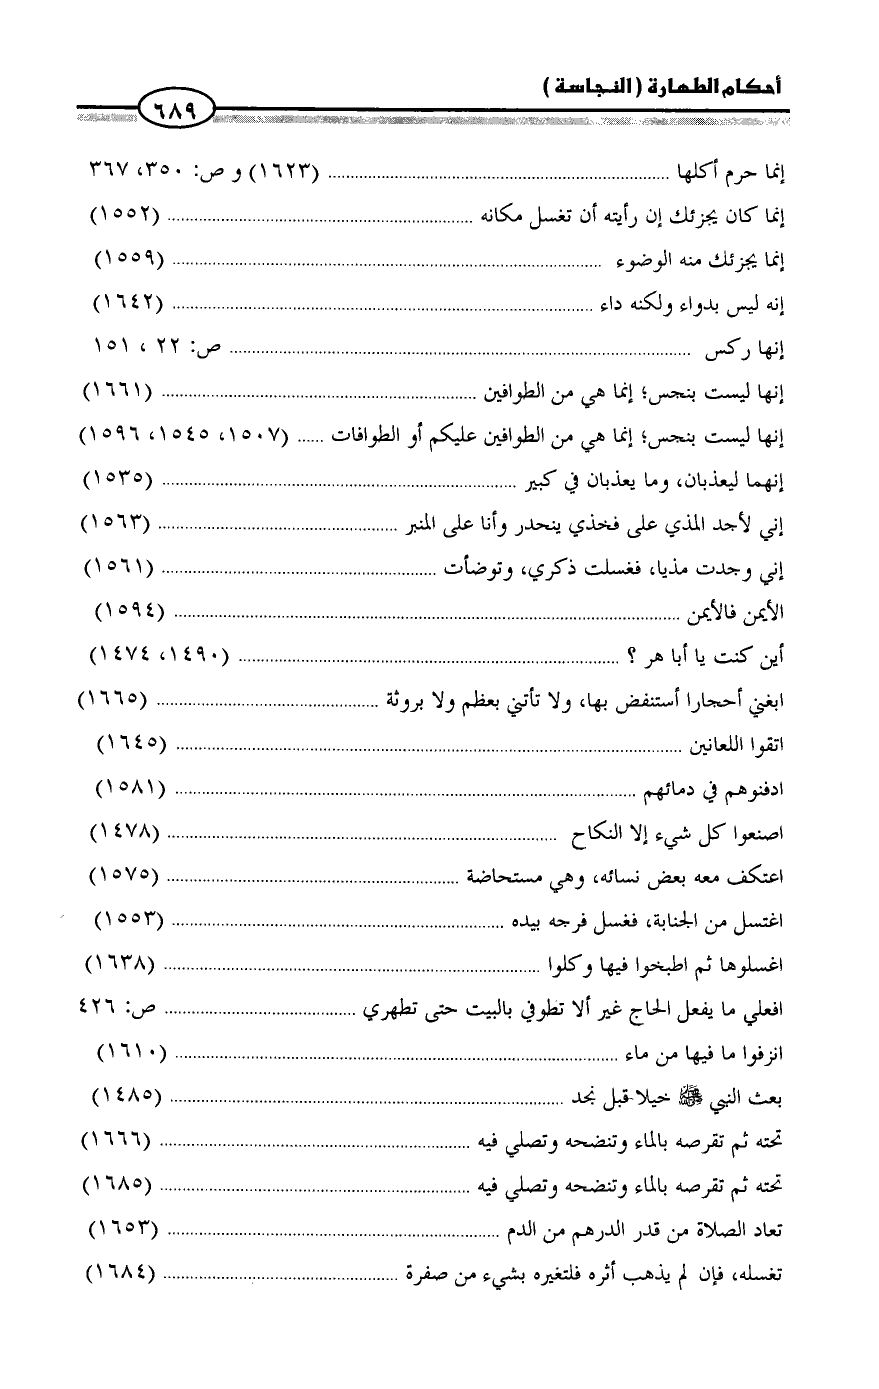 أحكام الطهارة (النجاسة)
٦٨٩
إنما حرم أكلها ........ (١٦٢٣) و ص: ٣٥٠، ٣٦٧
إنما كان يجزئك إن رأيته أن تغسل مكانه ........ (١٥٥٢)
إنما يجزئك منه الوضوء ........ (١٥٥٩)
إنه ليس بدواء ولكنه داء ........ (١٦٤٢)
إنها ركس ........ ص: ٢٢ ، ١٥١
إنها ليست بنجس؛ إنما هي من الطوافين ........ (١٦٦١)
إنها ليست بنجس؛ إنما هي من الطوافين عليكم أو الطوافات ...... (١٥٠٧، ١٥٤٥، ١٥٩٦)
إنهما ليعذبان، وما يعذبان في كبير ........ (١٥٣٥)
إني لأجد المذي على فخذي ينحدر وأنا على المنبر ........ (١٥٦٣)
إني وجدت مذيا، فغسلت ذكري، وتوضأت ........ (١٥٦١)
الأيمن فالأيمن ........ (١٥٩٤)
أين كنت يا أبا هر ؟ ........ (١٤٩٠، ١٤٧٤)
ابغني أحجارا أستنفض بها، ولا تأتني بعظم ولا بروثة ........ (١٦٦٥)
اتقوا اللعانين ........ (١٦٤٥)
ادفنوهم في دمائهم ........ (١٥٨١)
اصنعوا كل شيء إلا النكاح ........ (١٤٧٨)
اعتكف معه بعض نسائه، وهي مستحاضة ........ (١٥٧٥)
اغتسل من الجنابة، فغسل فرجه بيده ........ (١٥٥٣)
اغسلوها ثم اطبخوا فيها وكلوا ........ (١٦٣٨)
افعلي ما يفعل الحاج غير ألا تطوفي بالبيت حتى تطهري ........ ص: ٤٢٦
انزفوا ما فيها من ماء ........ (١٦١٠)
بعث النبي ﷺ خيلا قبل نجد ........ (١٤٨٥)
تحته ثم تقرصه بالماء وتنضحه وتصلي فيه ........ (١٦٦٦)
تحته ثم تقرصه بالماء وتنضحه وتصلي فيه ........ (١٦٨٥)
تعاد الصلاة من قدر الدرهم من الدم ........ (١٦٥٣)
تغسله، فإن لم يذهب أثره فلتغيره بشيء من صفرة ........ (١٦٨٤)